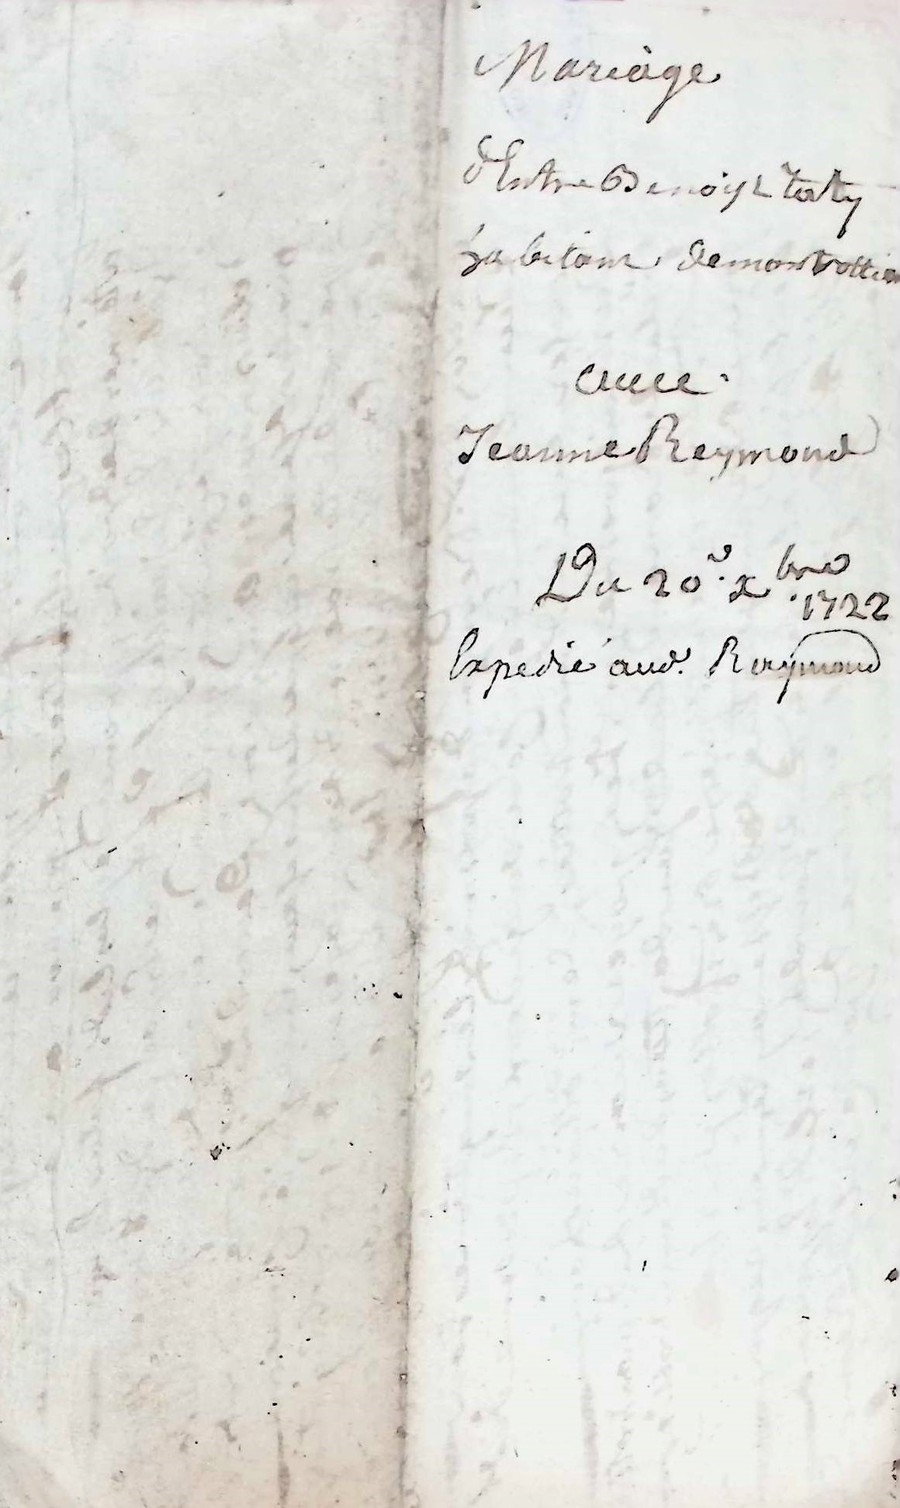 Mariage
d'Entre Benoist taty
habitant demontrottier
avec
Jeanne Reymond
Du 20e xbre 1722
Expedié aud. Reymond